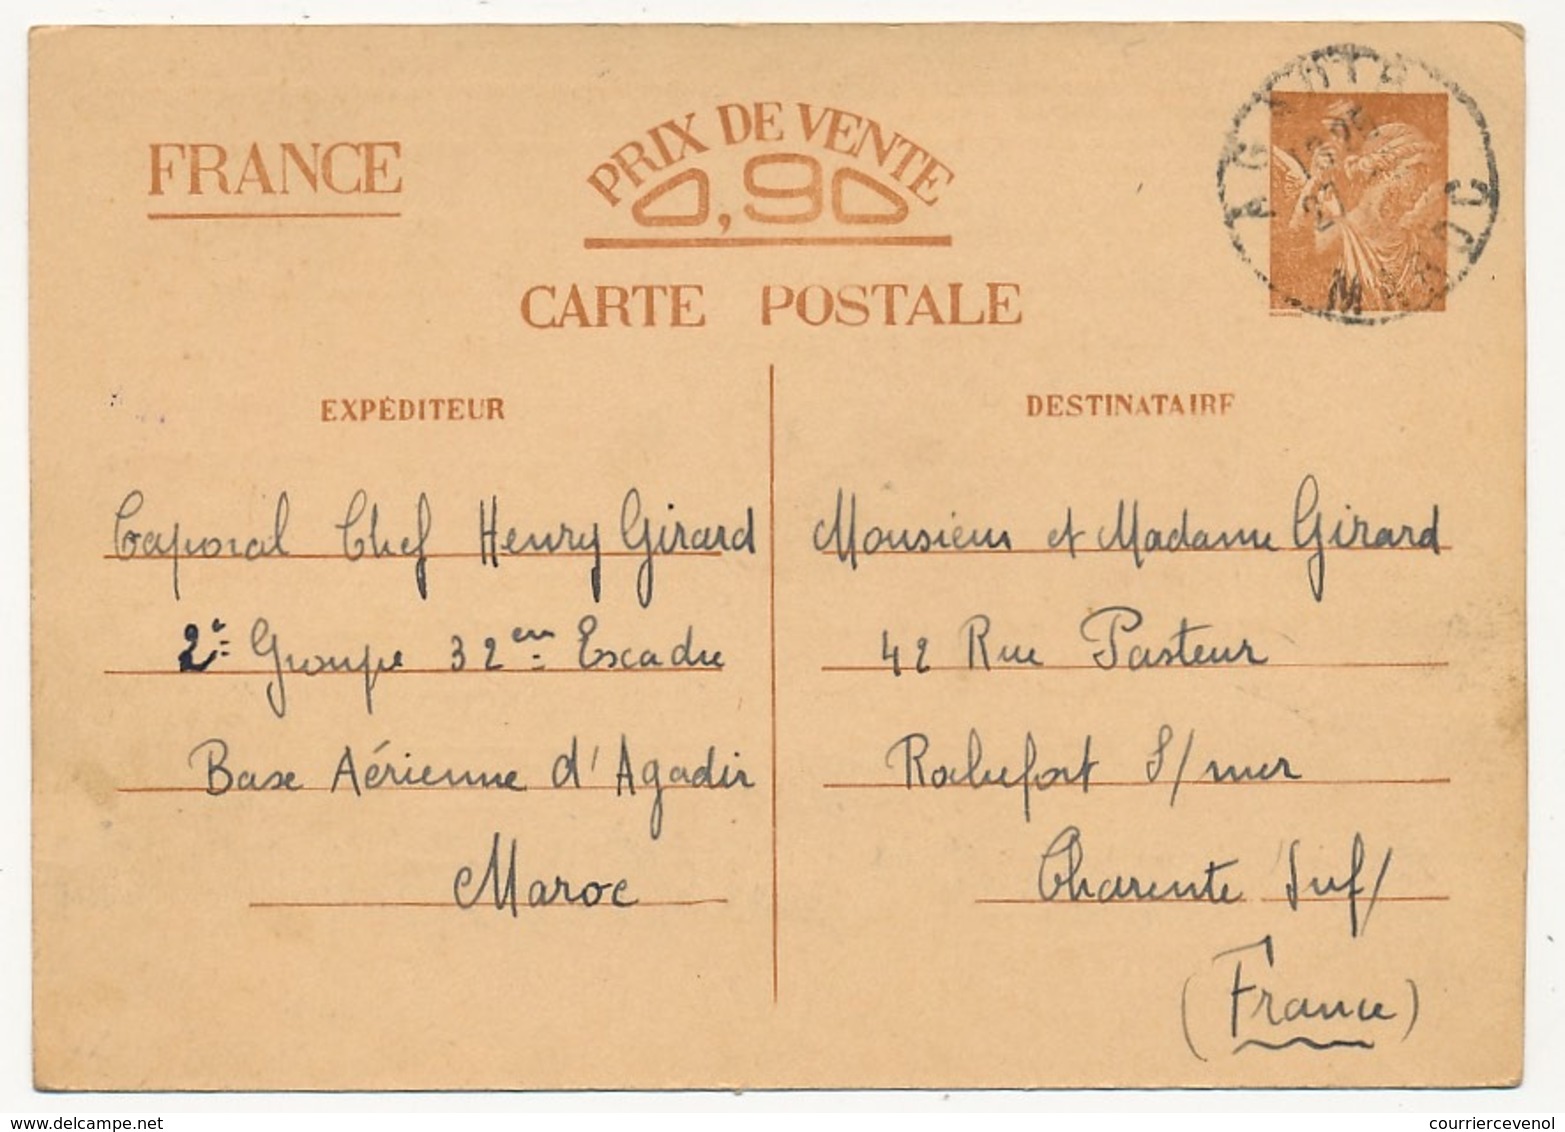 FRANCE
PRIX DE VENTE
0,90
CARTE POSTALE
AGADIR
13 25
27
MAROC
EXPÉDITEUR
Caporal Chef Henry Girard
2e Groupe 32eme Escadre
Base Aérienne d'Agadir
Maroc
DESTINATAIRE
Monsieur et Madame Girard
42 Rue Pasteur
Rochefort S/mer
Charente Inf/
(France)
courriercevenol